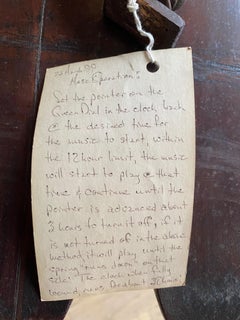 Music Operation's
Set the pointer on the
Green Dial in the clock back
@ the desired time for
the music to start, within
the 12 hour limit, the music
will start to play @ that
time & continue until the
pointer is advanced about
3 hours to turn it off, if it
is not turned of in the above
method, it will play until the
spring "runs down" on that
side. The clock when fully
wound runs for about